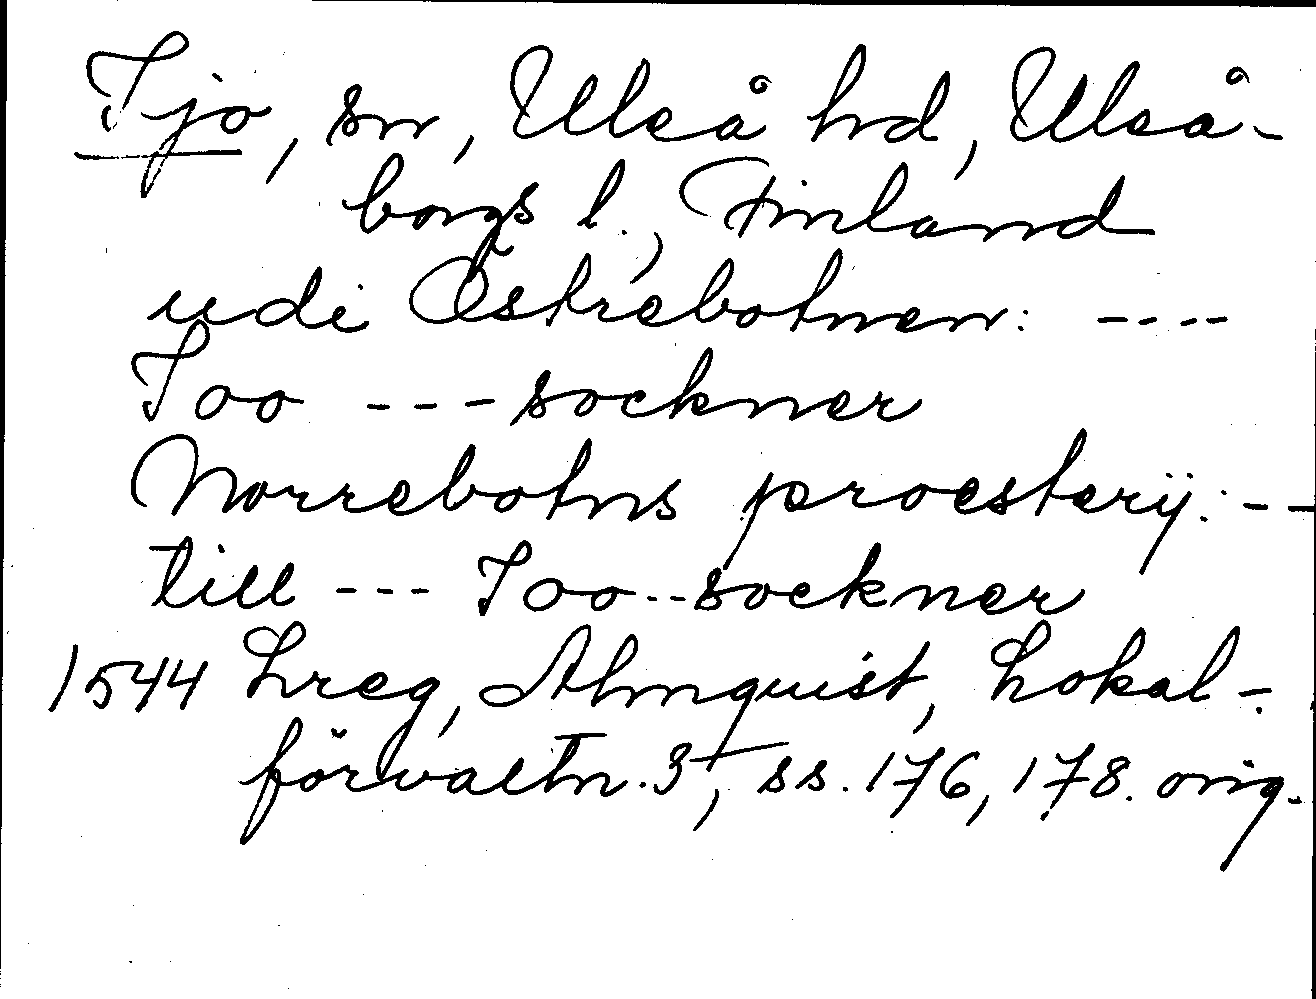 Ijo, sn, Uleå hd, Uleå-
borgs l., Finland
udi Østrebotnen: ----
Ioo --- sockner
Norrebotns proesterij: --
till --- Ioo -- sockner
1544 Lreg, Almquist, Lokal-
förvaltn. 3, ss. 176, 178. orig.